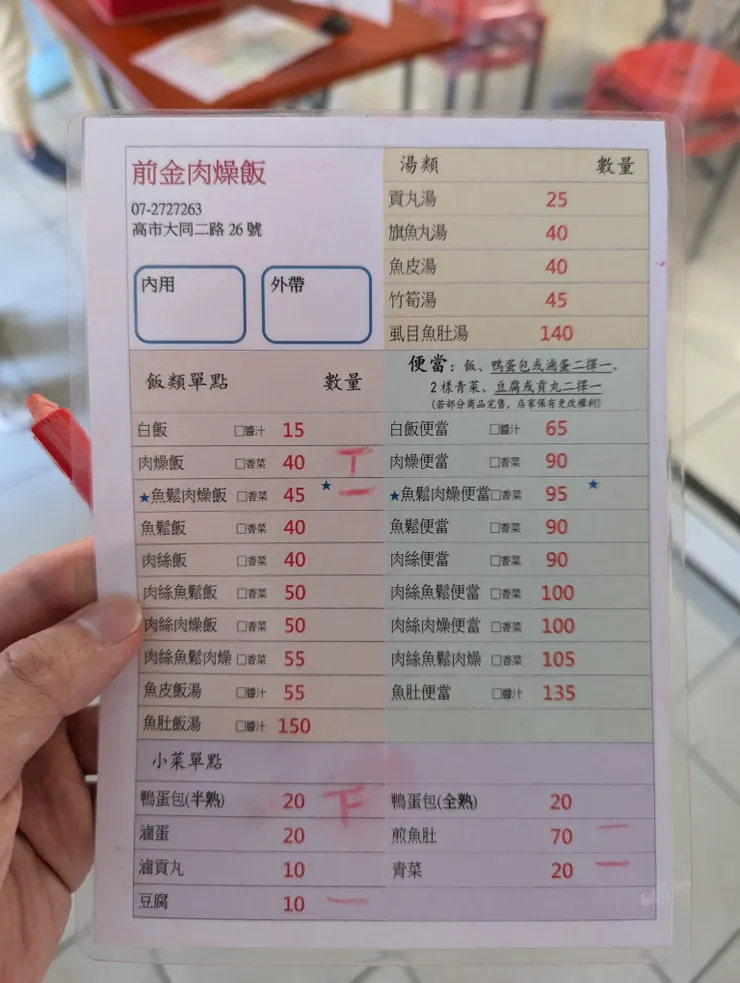 前金肉燥飯
07-2727263
高市大同二路 26 號
內用
外帶
湯類 數量
貢丸湯 25
旗魚丸湯 40
魚皮湯 40
竹筍湯 45
虱目魚肚湯 140
飯類單點 數量
白飯 □醬汁 15
肉燥飯 □香菜 40 丅
★魚鬆肉燥飯 □香菜 45 ★ 一
魚鬆飯 □香菜 40
肉絲飯 □香菜 40
肉絲魚鬆飯 □香菜 50
肉絲肉燥飯 □香菜 50
肉絲魚鬆肉燥 □香菜 55
魚皮飯湯 □醬汁 55
魚肚飯湯 □醬汁 150
便當：飯、鴨蛋包或滷蛋二擇一、
2 樣青菜、豆腐或貢丸二擇一
(若部分商品完售，店家保有更改權利)
白飯便當 □醬汁 65
肉燥便當 □香菜 90
★魚鬆肉燥便當□香菜 95 ★
魚鬆便當 □香菜 90
肉絲便當 □香菜 90
肉絲魚鬆便當 □香菜 100
肉絲肉燥便當 □香菜 100
肉絲魚鬆肉燥 □香菜 105
魚肚便當 □醬汁 135
小菜單點
鴨蛋包(半熟) 20 下
滷蛋 20
滷貢丸 10
豆腐 10 一
鴨蛋包(全熟) 20
煎魚肚 70 一
青菜 20 一